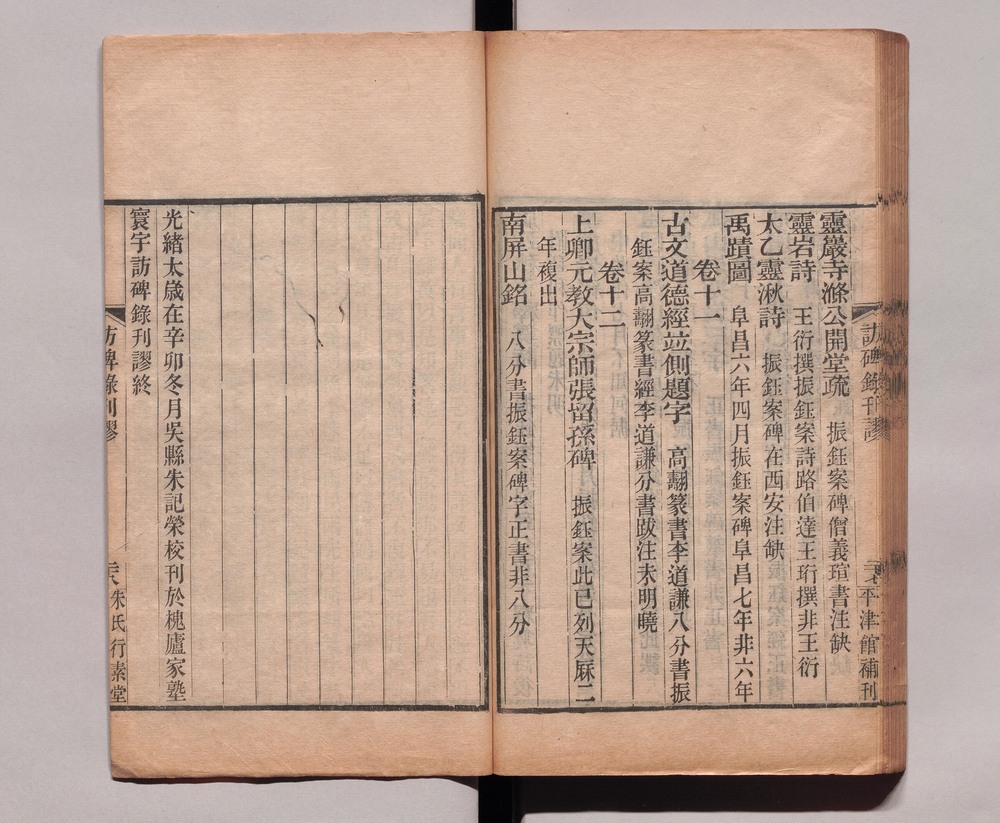 靈巖寺滌公開堂疏 振鈺案碑僧義瑄書注缺
靈岩詩 王衍撰振鈺案詩路伯達王珩撰非王衍
太乙靈湫詩 振鈺案碑在西安注缺
禹蹟圖 阜昌六年四月振鈺案碑阜昌七年非六年
卷十一
古文道德經並側題字 高翿篆書李道謙八分書振
鈺案高翿篆書經李道謙分書跋注未明曉
卷十二
上卿元教大宗師張留孫碑 振鈺案此已列天厤二
年複出
南屏山銘 八分書振鈺案碑字正書非八分
訪碑錄刊謬
二十八
平津館補刊
光緒太歲在辛卯冬月吳縣朱記榮校刊於槐廬家塾
寰宇訪碑錄刊謬終
訪碑錄刊謬
二十八
朱氏行素堂